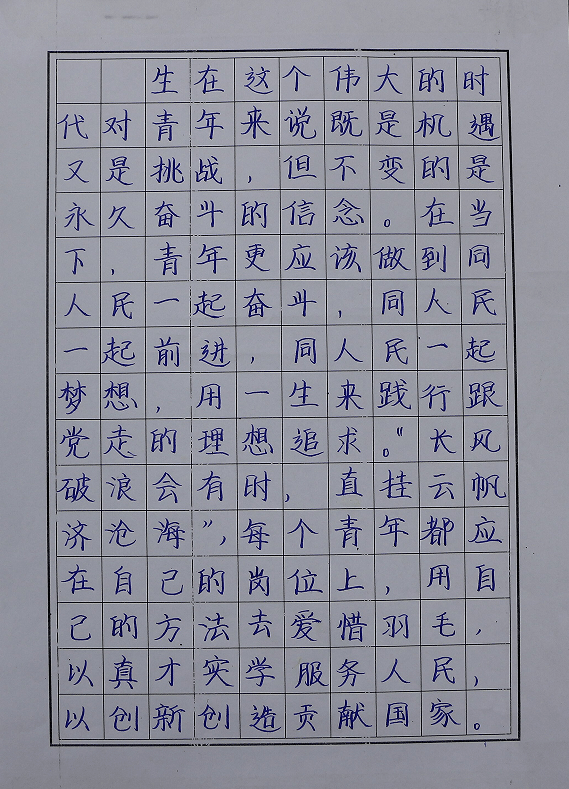 生在这个伟大的时
代对青年来说既是机遇
又是挑战，但不变的是
永久奋斗的信念。在当
下，青年更应该做到同
人民一起奋斗，同人民
一起前进，同人民一起
梦想，用一生来践行跟
党走的理想追求。“长风
破浪会有时，直挂云帆
济沧海”，每个青年都应
在自己的岗位上，用自
己的方法去爱惜羽毛，
以真才实学服务人民，
以创新创造贡献国家。